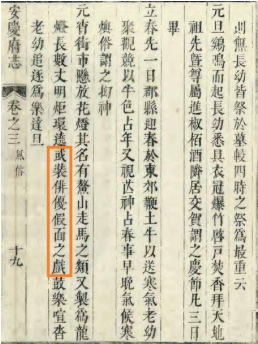 則無長幼皆祭於墓較四時之祭為最重云
元旦雞鳴而起長幼悉具衣冠爆竹啓戶焚香拜天地
祖先曁尊屬進椒栢酒隣居交賀謂之慶節凡三日
畢
立春先一日郡縣迎春於東郊鞭土牛以送寒氣老幼
聚觀競以牛色占年又視芒神占春事早晚氣候寒
燠俗謂之拗神
元宵街市懸放花燈其名有鰲山走馬之類又製為龍
燈長數丈明炬環遶或裝俳優假面之戲鼓樂喧沓
老幼追逐為樂達旦
安慶府志 卷之三 風俗 十九